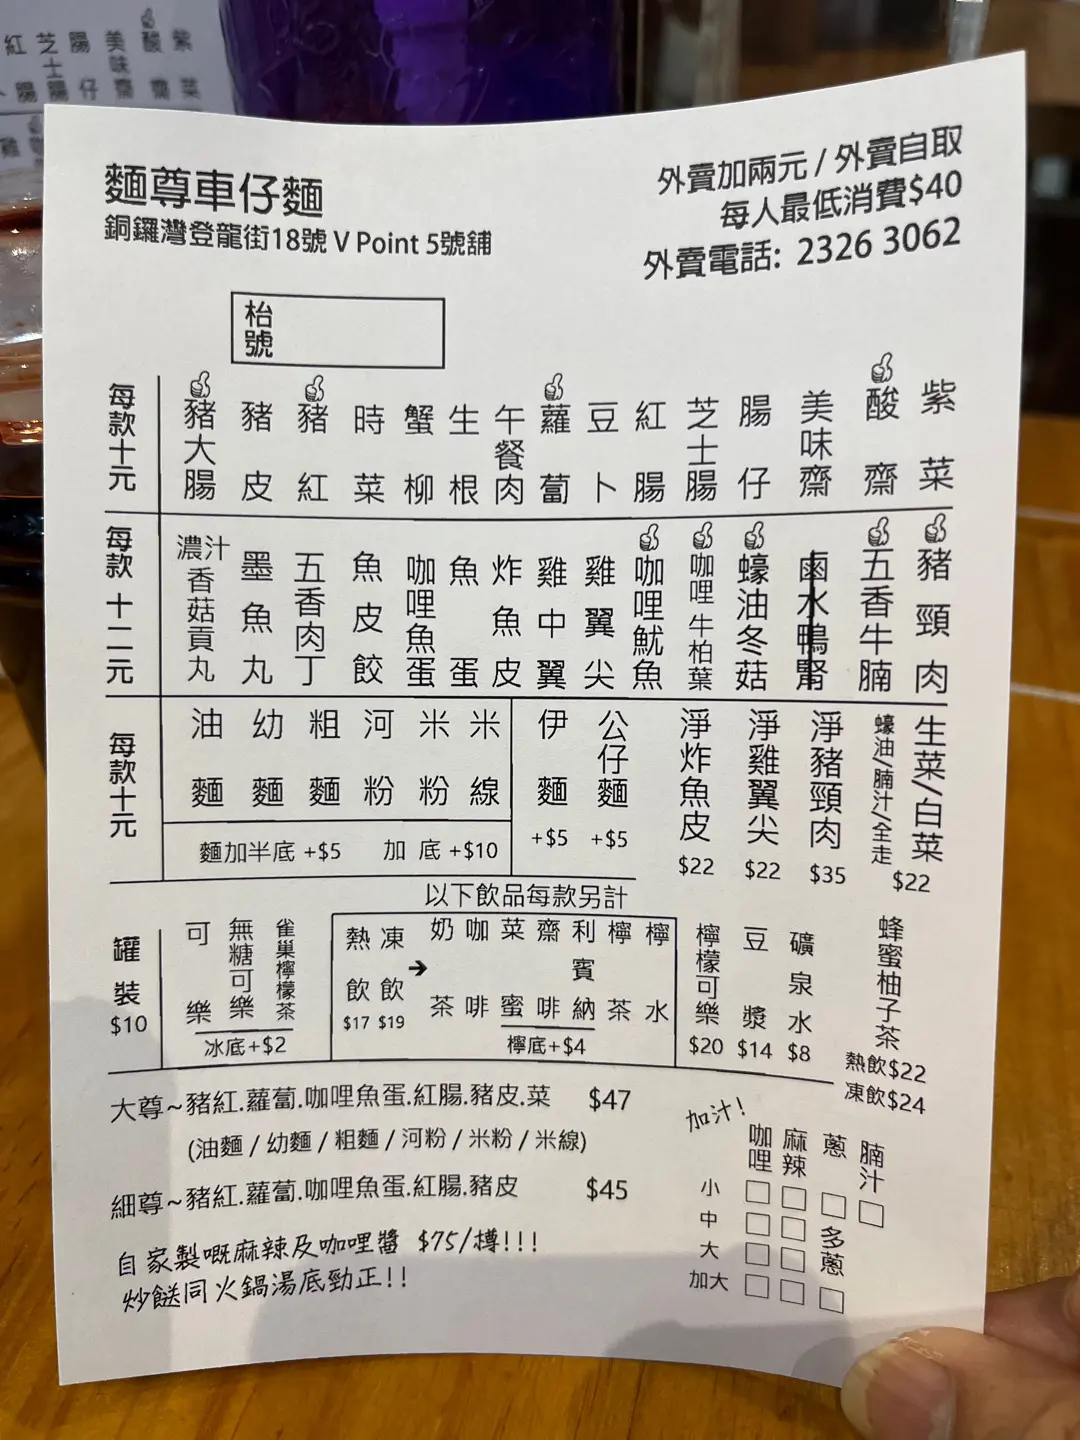 麵尊車仔麵
銅鑼灣登龍街18號 V Point 5號舖
外賣加兩元 / 外賣自取
每人最低消費$40
外賣電話: 2326 3062
枱號
每款十元
豬大腸
豬皮
豬紅
時菜
蟹柳
生根
午餐肉
蘿蔔
豆卜
紅腸
芝士腸
腸仔
美味齋
酸齋
紫菜
每款十二元
濃汁香菇貢丸
墨魚丸
五香肉丁
魚皮餃
咖哩魚蛋
魚蛋
炸魚皮
雞中翼
雞翼尖
咖哩魷魚
咖哩牛柏葉
蠔油冬菇
鹵水鴨腎
五香牛腩
豬頸肉
每款十元
油麵
幼麵
粗麵
河粉
米粉
米線
麵加半底 +$5 加 底 +$10
伊麵 +$5
公仔麵 +$5
淨炸魚皮 $22
淨雞翼尖 $22
淨豬頸肉 $35
蠔油/腩汁/全走
生菜/白菜
$22
以下飲品每款另計
罐裝 $10
可樂
無糖可樂
雀巢檸檬茶
冰底+$2
熱飲 $17
凍飲 $19
➔
奶茶
咖啡
菜蜜
齋啡
利賓納
檸茶
檸水
檸底+$4
檸檬可樂 $20
豆漿 $14
礦泉水 $8
蜂蜜柚子茶
熱飲$22
凍飲$24
大尊~豬紅.蘿蔔.咖哩魚蛋.紅腸.豬皮.菜 $47
(油麵 / 幼麵 / 粗麵 / 河粉 / 米粉 / 米線)
細尊~豬紅.蘿蔔.咖哩魚蛋.紅腸.豬皮 $45
自家製嘅麻辣及咖哩醬 $75/樽!!!
炒餸同火鍋湯底勁正!!
加汁!
咖哩 麻辣 蔥 腩汁
小 □ □ □ □
中 □ □ 多蔥
大 □ □
加大 □ □ □
紅
芝士腸
腸仔
美味齋
酸齋
紫菜